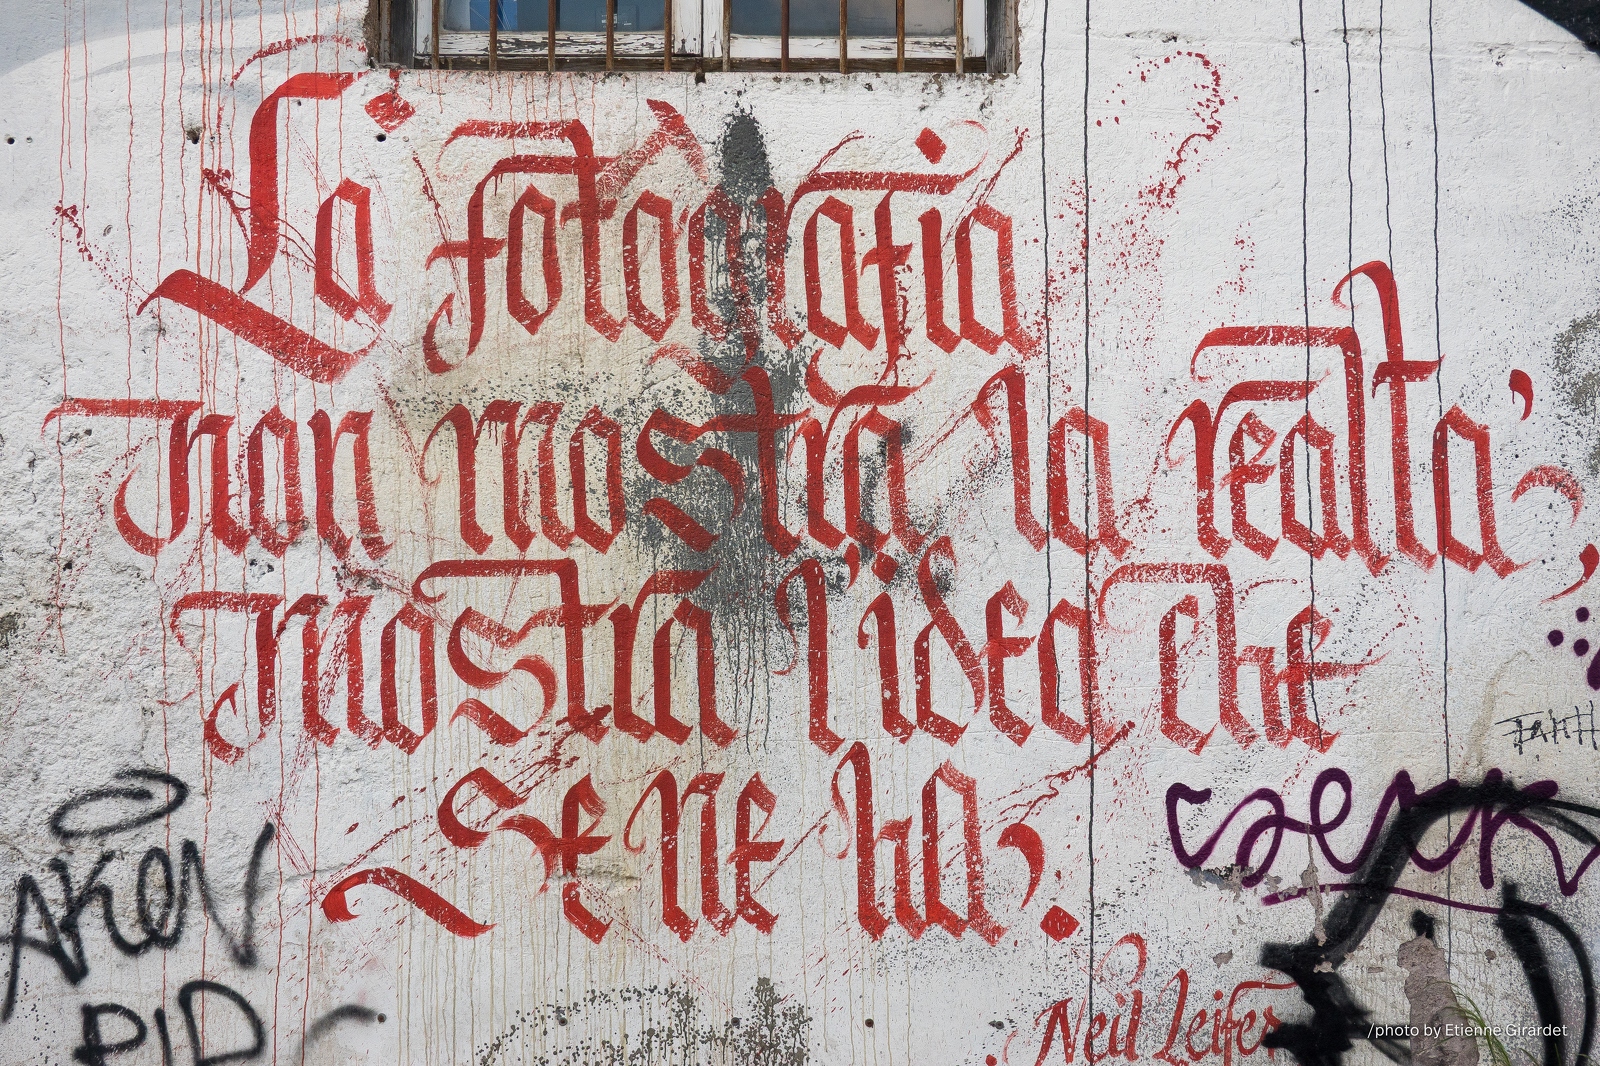 La fotografia
non mostra la realtà,
mostra l'idea che
se ne ha.
Neil Leifer
AKEN
PID
/photo by Etienne Girardet